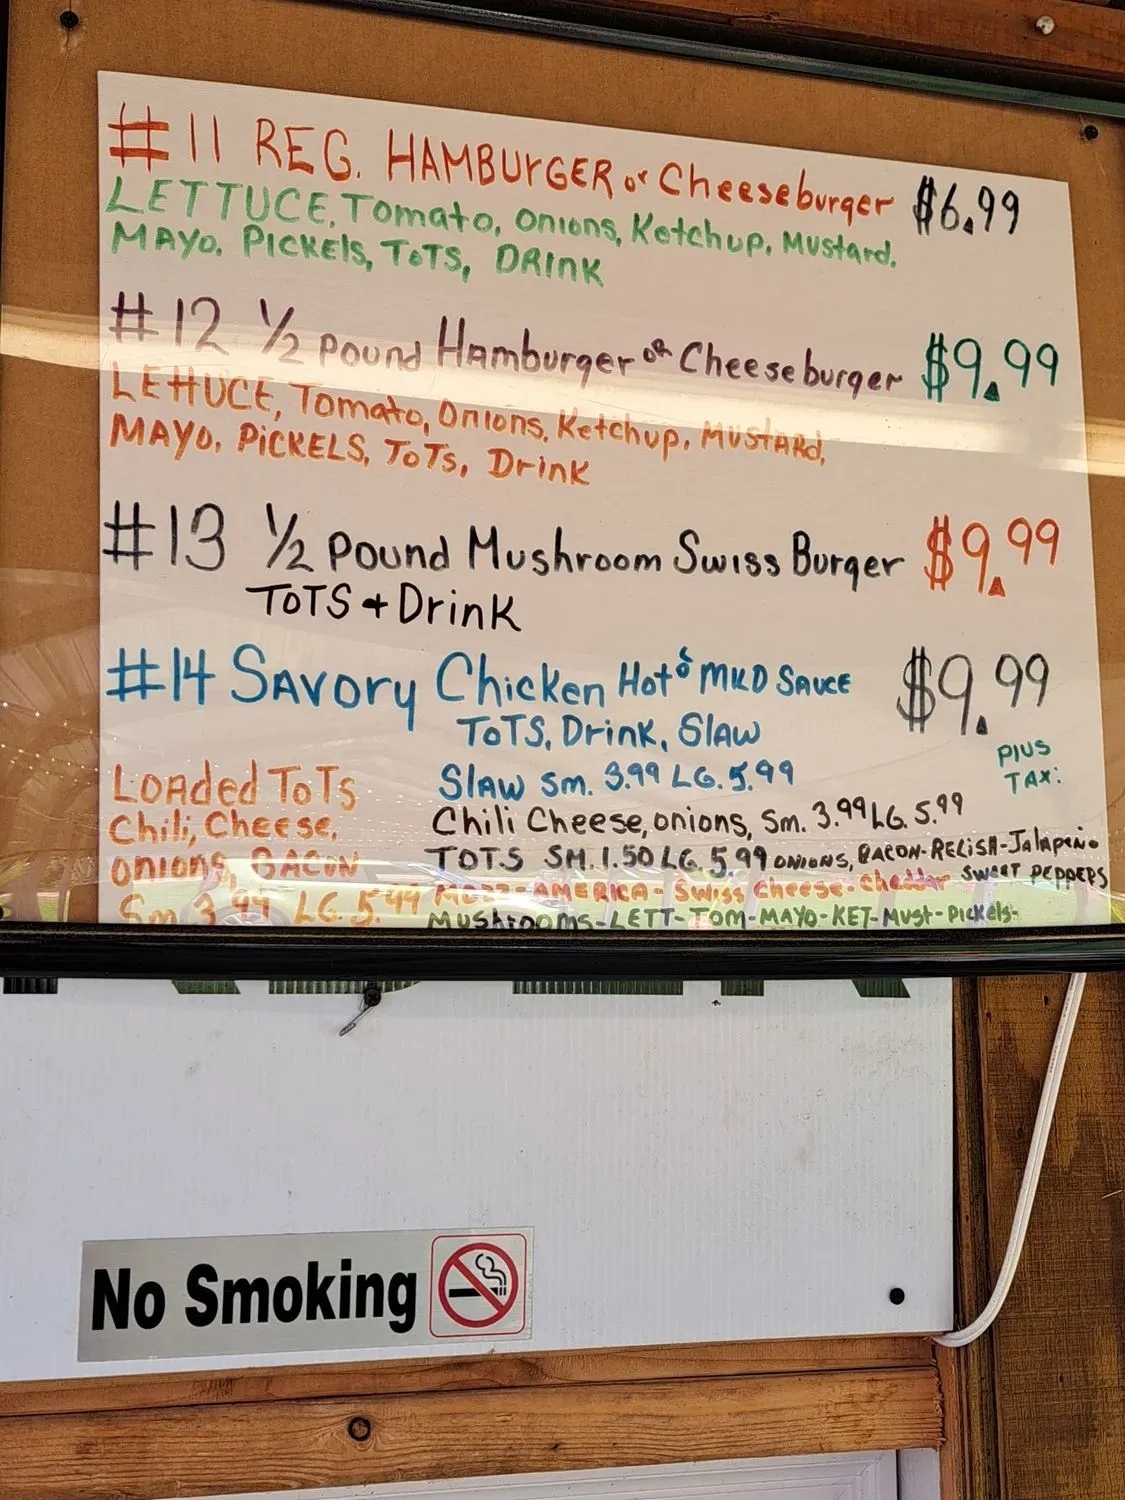 #11 REG. HAMBURGER or Cheeseburger $6.99
LETTUCE, Tomato, Onions, Ketchup, Mustard,
MAYO, PICKEls, ToTS, DRINK
#12 1/2 Pound Hamburger OR Cheeseburger $9.99
LETTUCE, Tomato, Onions, Ketchup, MUSTARD,
MAYO, PiCKELS, ToTs, Drink
#13 1/2 Pound Mushroom Swiss Burger $9.99
ToTS + Drink
#14 SAVORY Chicken Hot or MILD SAUCE $9.99
ToTS, Drink, SlAW
PlUS
TAX:
SlAW Sm. 3.99 LG. 5.99
LOAded ToTs
Chili, Cheese,
onions, BACON
Sm 3.99 LG. 5.99
Chili Cheese, onions, Sm. 3.99 LG. 5.99
TOTS SM. 1.50 LG. 5.99 ONIONS, BACON-RELiSH-JalApeno
SWEET PEPPERS
MOZZ-AMERICA-Swiss Cheese-Cheddar
MUSHrooms-LETT-TOM-MAYO-KET-MUST-PICKels-
No Smoking